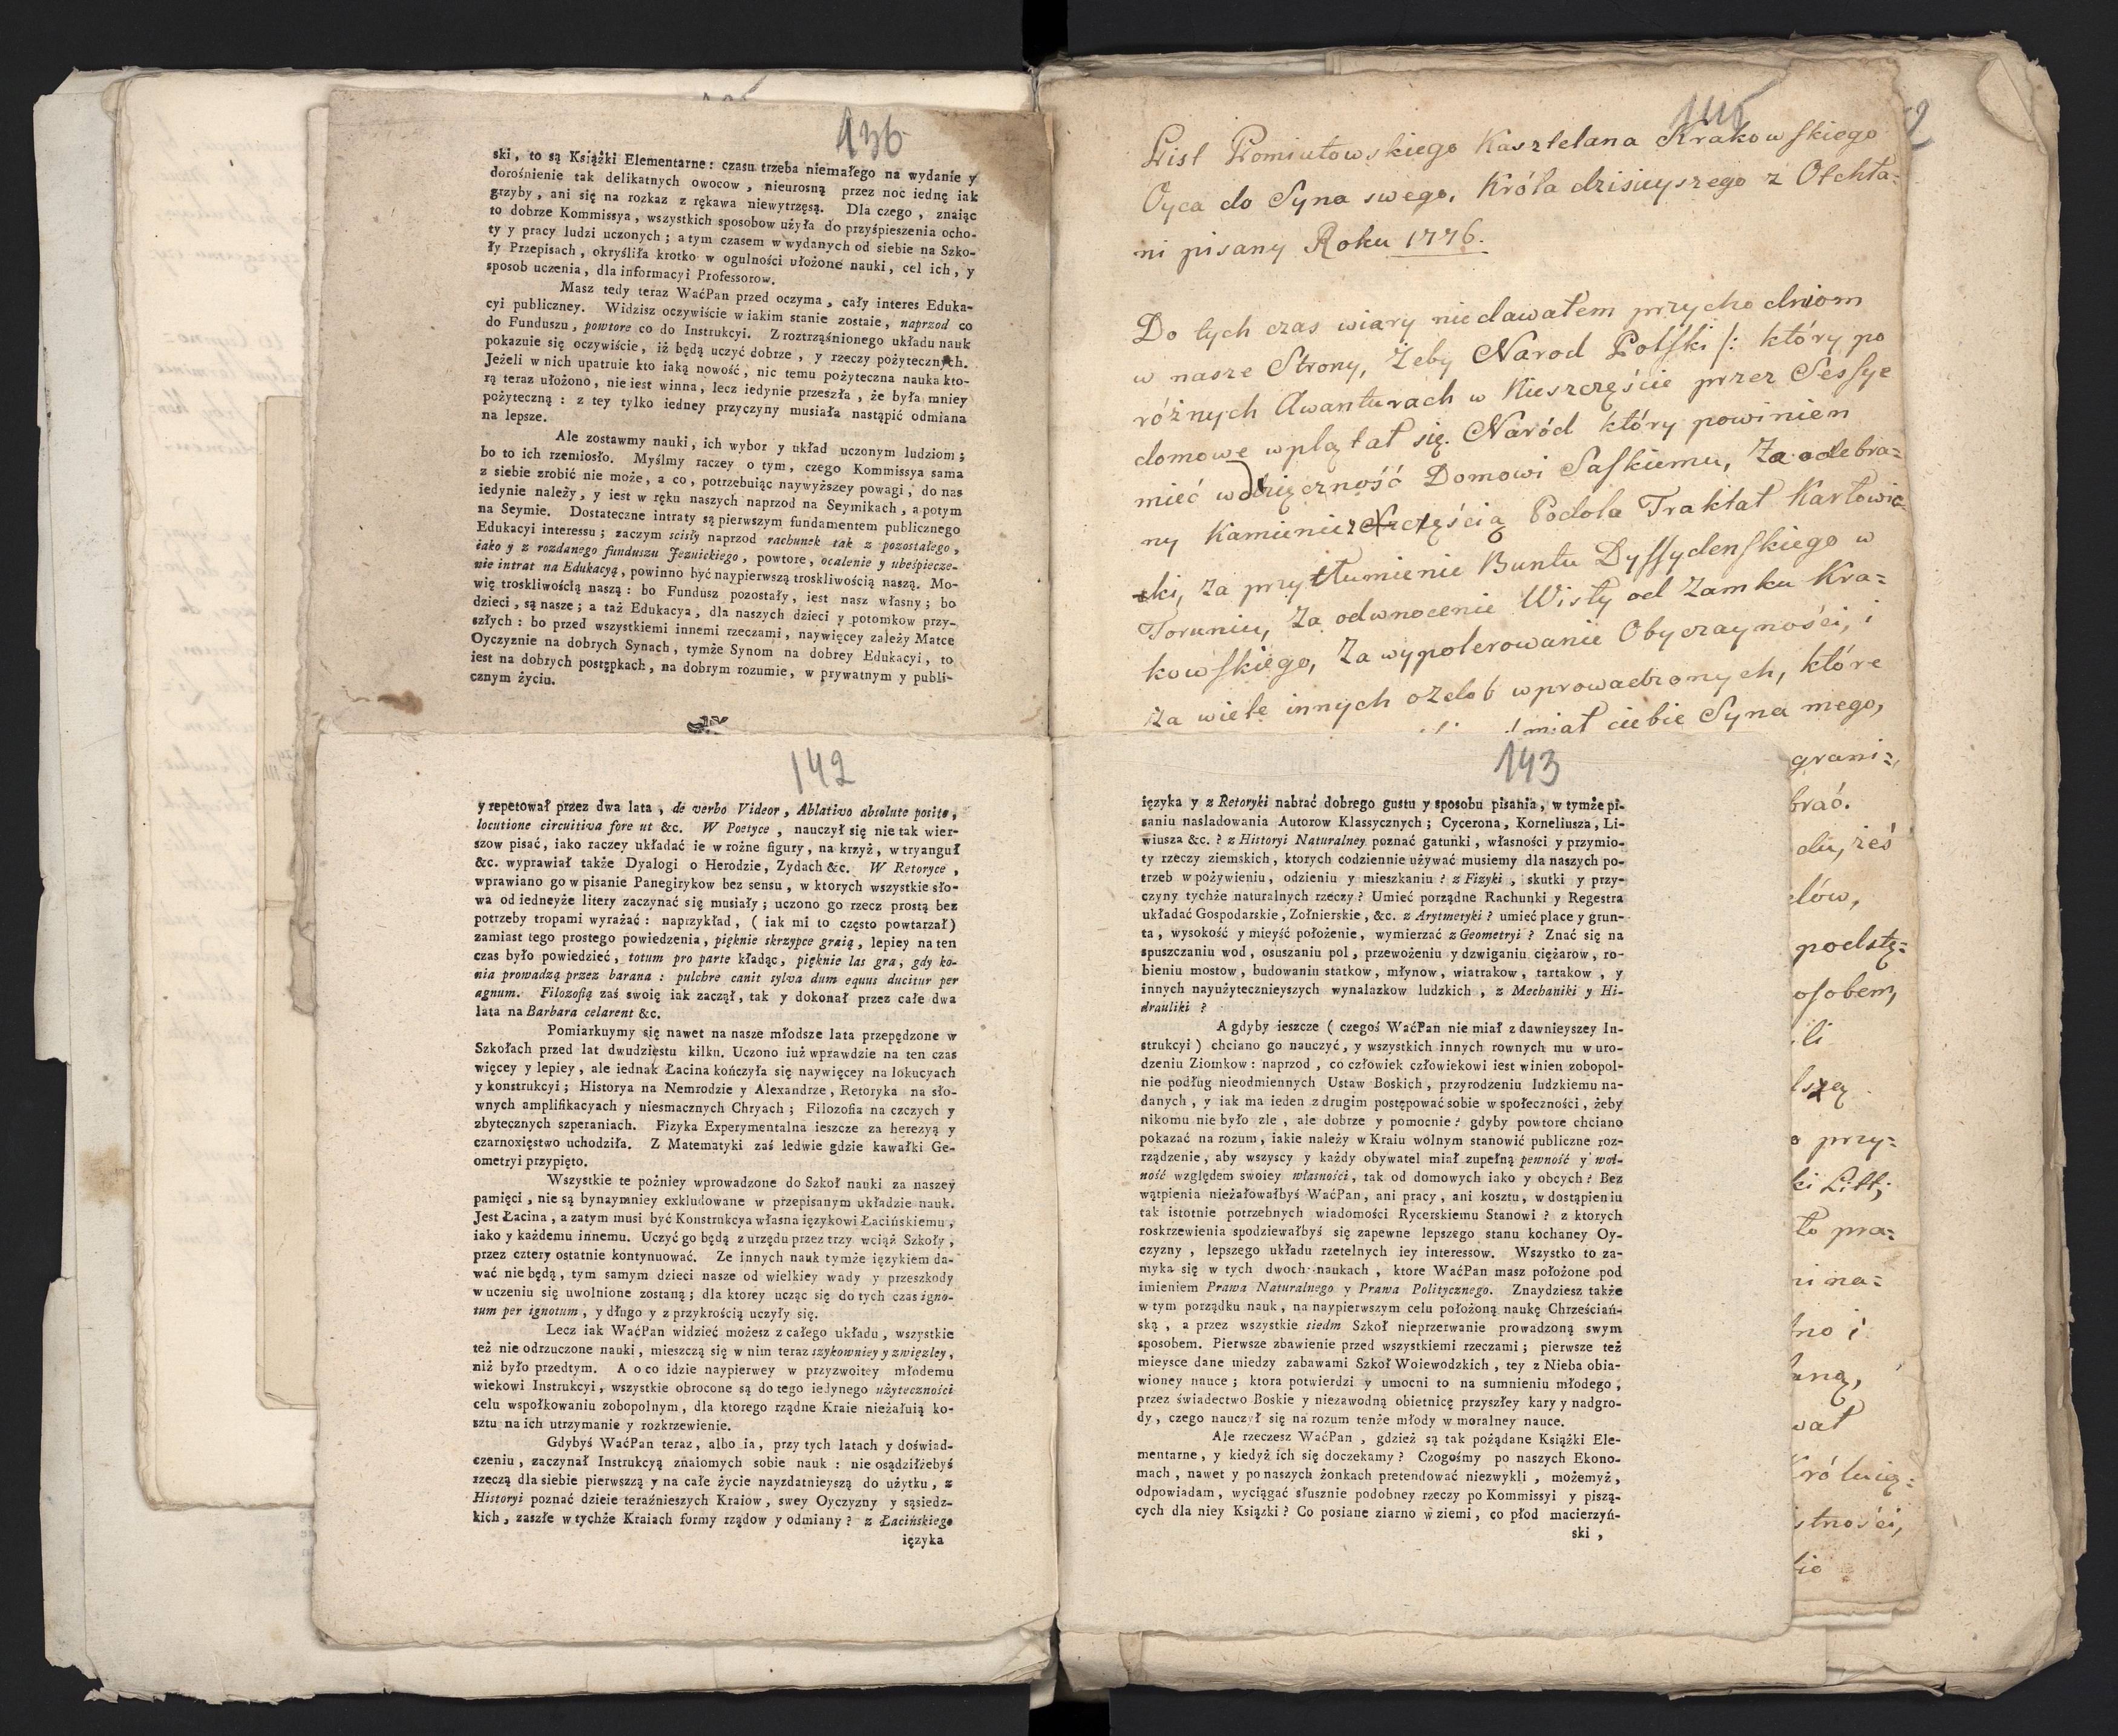 136
ski, to są Książki Elementarne: czasu trzeba niemałego na wydanie y
dorośnienie tak delikatnych owocow, nieurosną przez noc iednę iak
grzyby, ani się na rozkaz z rękawa niewytrzęsą. Dla czego, znaiąc
to dobrze Kommissya, wszystkich sposobow użyła do przyśpieszenia ocho-
ty y pracy ludzi uczonych; a tym czasem w wydanych od siebie na Szko-
ły Przepisach, okryśliła krotko w ogulności ułożone nauki, cel ich, y
sposob uczenia, dla informacyi Professorow.
Masz tedy teraz WaćPan przed oczyma, cały interes Eduka-
cyi publiczney. Widzisz oczywiście w iakim stanie zostaie, naprzod co
do Funduszu, powtore co do Instrukcyi. Z roztrząśnionego układu nauk
pokazuie się oczywiście, iż będą uczyć dobrze, y rzeczy pożytecznych.
Jeżeli w nich upatruie kto iaką nowość, nic temu pożyteczna nauka kto-
rą teraz ułożono, nie iest winna, lecz iedynie przeszła, że była mniey
pożyteczną: z tey tylko iedney przyczyny musiała nastąpić odmiana
na lepsze.
Ale zostawmy nauki, ich wybor y układ uczonym ludziom;
bo to ich rzemiosło. Myślmy raczey o tym, czego Kommissya sama
z siebie zrobić nie może, a co, potrzebuiąc naywyższey powagi, do nas
iedynie należy, y iest w ręku naszych naprzod na Seymikach, a potym
na Seymie. Dostateczne intraty są pierwszym fundamentem publicznego
Edukacyi interessu; zaczym scisły naprzod rachunek tak z pozostałego,
iako y z rozdanego funduszu Jezuickiego, powtore, ocalenie y ubeśpiecze-
nie intrat na Edukacyą, powinno być naypierwszą troskliwością naszą. Mo-
wię troskliwością naszą: bo Fundusz pozostały, iest nasz własny; bo
dzieci, są nasze; a taż Edukacya, dla naszych dzieci y potomkow przy-
szłych: bo przed wszystkiemi innemi rzeczami, naywięcey zależy Matce
Oyczyznie na dobrych Synach, tymże Synom na dobrey Edukacyi, to
iest na dobrych postępkach, na dobrym rozumie, w prywatnym y publi-
cznym życiu.
142
y repetował przez dwa lata, de verbo Videor, Ablativo absolute posito,
locutione circuitiva fore ut &c. W Poetyce, nauczył się nie tak wier-
szow pisać, iako raczey układać ie w rożne figury, na krzyż, w tryanguł
&c. wyprawiał także Dyalogi o Herodzie, Zydach &c. W Retoryce,
wprawiano go w pisanie Panegirykow bez sensu, w ktorych wszystkie sło-
wa od iedneyże litery zaczynać się musiały; uczono go rzecz prostą bez
potrzeby tropami wyrażać: naprzykład, ( iak mi to często powtarzał)
zamiast tego prostego powiedzenia, pięknie skrzypce graią, lepiey na ten
czas było powiedzieć, totum pro parte kładąc, pięknie las gra, gdy ko-
nia prowadzą przez barana: pulchre canit sylva dum equus ducitur per
agnum. Filozofią zaś swoię iak zaczął, tak y dokonał przez całe dwa
lata na Barbara celarent &c.
Pomiarkuymy się nawet na nasze młodsze lata przepędzone w
Szkołach przed lat dwudziestu kilku. Uczono iuż wprawdzie na ten czas
więcey y lepiey, ale iednak Łacina kończyła się naywięcey na lokucyach
y konstrukcyi; Historya na Nemrodzie y Alexandrze, Retoryka na sło-
wnych amplifikacyach y niesmacznych Chryach; Filozofia na czczych y
zbytecznych szperaniach. Fizyka Experymentalna ieszcze za herezyą y
czarnoxięstwo uchodziła. Z Matematyki zaś ledwie gdzie kawałki Ge-
ometryi przypięto.
Wszystkie te pożniey wprowadzone do Szkoł nauki za naszey
pamięci, nie są bynaymniey exkludowane w przepisanym układzie nauk.
Jest Łacina, a zatym musi być Konstrukcya własna ięzykowi Łacińskiemu,
iako y każdemu innemu. Uczyć go będą z urzędu przez trzy wciąż Szkoły,
przez cztery ostatnie kontynuować. Ze innych nauk tymże ięzykiem da-
wać nie będą, tym samym dzieci nasze od wielkiey wady y przeszkody
w uczeniu się uwolnione zostaną; dla ktorey ucząc się do tych czas igno-
tum per ignotum, y długo y z przykrością uczyły się.
Lecz iak WaćPan widzieć możesz z całego układu, wszystkie
też nie odrzucone nauki, mieszczą się w nim teraz szykowniey y zwięzley,
niż było przedtym. A o co idzie naypierwey w przyzwoitey młodemu
wiekowi Instrukcyi, wszystkie obrocone są do tego iedynego użyteczności
celu wspołkowaniu zobopolnym, dla ktorego rządne Kraie nieżałuią ko-
sztu na ich utrzymanie y rozkrzewienie.
Gdybyś WaćPan teraz, albo ia, przy tych latach y doświad-
czeniu, zaczynał Instrukcyą znaiomych sobie nauk: nie osądziłżebyś
rzeczą dla siebie pierwszą y na całe życie nayzdatnieyszą do użytku, z
Historyi poznać dzieie teraźnieszych Kraiow, swey Oyczyzny y sąsiedz-
kich, zaszłe w tychże Kraiach formy rządow y odmiany? z Łacińskiego
ięzyka
145
List Poniatowskiego Kasztelana Krakowskiego
Oyca do Syna swego, Króla dzisieyszego z Otchła=
ni pisany Roku 1776.
Do tych czas wiary niedawałem przychodniom
w nasze Strony, Żeby Narod Polski /: który po
różnych Awanturach w Nieszczęście przez Sessye
domowe wplątał się. Naród który powinien
mieć wdzięczność Domowi Saskiemu, Za odebra=
ny Kamieniec z częścią Podola Traktat Karłowic=
ki, za przytłumienie Buntu Dyssydenskiego w
Toruniu, Za odwrocenie Wisły od Zamku Kra=
kowskiego, Za wypolerowanie Obyczayności, i
Za wiele innych ozdob wprowadzonych, które
miał ciebie Syna mego,
grani=
brać.
du, żeś
lów,
podstę=
osobem,
li
przy=
ki Litt;
to pra=
ni na=
no i
ną,
wał
Królwią=
stności,
143
ięzyka y z Retoryki nabrać dobrego gustu y sposobu pisania, w tymże pi-
saniu nasladowania Autorow Klassycznych; Cycerona, Korneliusza, Li-
wiusza &c. ? z Historyi Naturalney poznać gatunki, własności y przymio-
ty rzeczy ziemskich, ktorych codziennie używać musiemy dla naszych po-
trzeb w pożywieniu, odzieniu y mieszkaniu? z Fizyki, skutki y przy-
czyny tychże naturalnych rzeczy? Umieć porządne Rachunki y Regestra
układać Gospodarskie, Zołnierskie, &c. z Arytmetyki? umieć place y grun-
ta, wysokość y mieyść położenie, wymierzać z Geometryi? Znać się na
spuszczaniu wod, osuszaniu pol, przewożeniu y dzwiganiu ciężarow, ro-
bieniu mostow, budowaniu statkow, młynow, wiatrakow, tartakow, y
innych nayużytecznieyszych wynalazkow ludzkich, z Mechaniki y Hi-
drauliki?
A gdyby ieszcze ( czegoś WaćPan nie miał z dawnieyszey In-
strukcyi) chciano go nauczyć, y wszystkich innych rownych mu w uro-
dzeniu Ziomkow: naprzod, co człowiek człowiekowi iest winien zobopol-
nie podług nieodmiennych Ustaw Boskich, przyrodzeniu ludzkiemu na-
danych, y iak ma ieden z drugim postępować sobie w społeczności, żeby
nikomu nie było zle, ale dobrze y pomocnie? gdyby powtore chciano
pokazać na rozum, iakie należy w Kraiu wolnym stanowić publiczne roz-
rządzenie, aby wszyscy y każdy obywatel miał zupełną pewność y wol-
ność względem swoiey własności, tak od domowych iako y obcych? Bez
wątpienia nieżałowałbyś WaćPan, ani pracy, ani kosztu, w dostąpieniu
tak istotnie potrzebnych wiadomości Rycerskiemu Stanowi? z ktorych
roskrzewienia spodziewałbyś się zapewne lepszego stanu kochaney Oy-
czyzny, lepszego układu rzetelnych iey interessow. Wszystko to za-
myka się w tych dwoch naukach, ktore WaćPan masz położone pod
imieniem Prawa Naturalnego y Prawa Politycznego. Znaydziesz także
w tym porządku nauk, na naypierwszym celu położoną naukę Chrześciań-
ską, a przez wszystkie siedm Szkoł nieprzerwanie prowadzoną swym
sposobem. Pierwsze zbawienie przed wszystkiemi rzeczami; pierwsze też
mieysce dane miedzy zabawami Szkoł Woiewodzkich, tey z Nieba obia-
wioney nauce; ktora potwierdzi y umocni to na sumnieniu młodego,
przez świadectwo Boskie y niezawodną obietnicę przyszłey kary y nadgro-
dy, czego nauczył się na rozum tenże młody w moralney nauce.
Ale rzeczesz WaćPan, gdzież są tak pożądane Książki Ele-
mentarne, y kiedyż ich się doczekamy? Czogośmy po naszych Ekono-
mach, nawet y po naszych żonkach pretendować niezwykli, możemyż,
odpowiadam, wyciągać słusznie podobney rzeczy po Kommissyi y piszą-
cych dla niey Ksiązki? Co posiane ziarno w ziemi, co płod macierzyń-
ski,